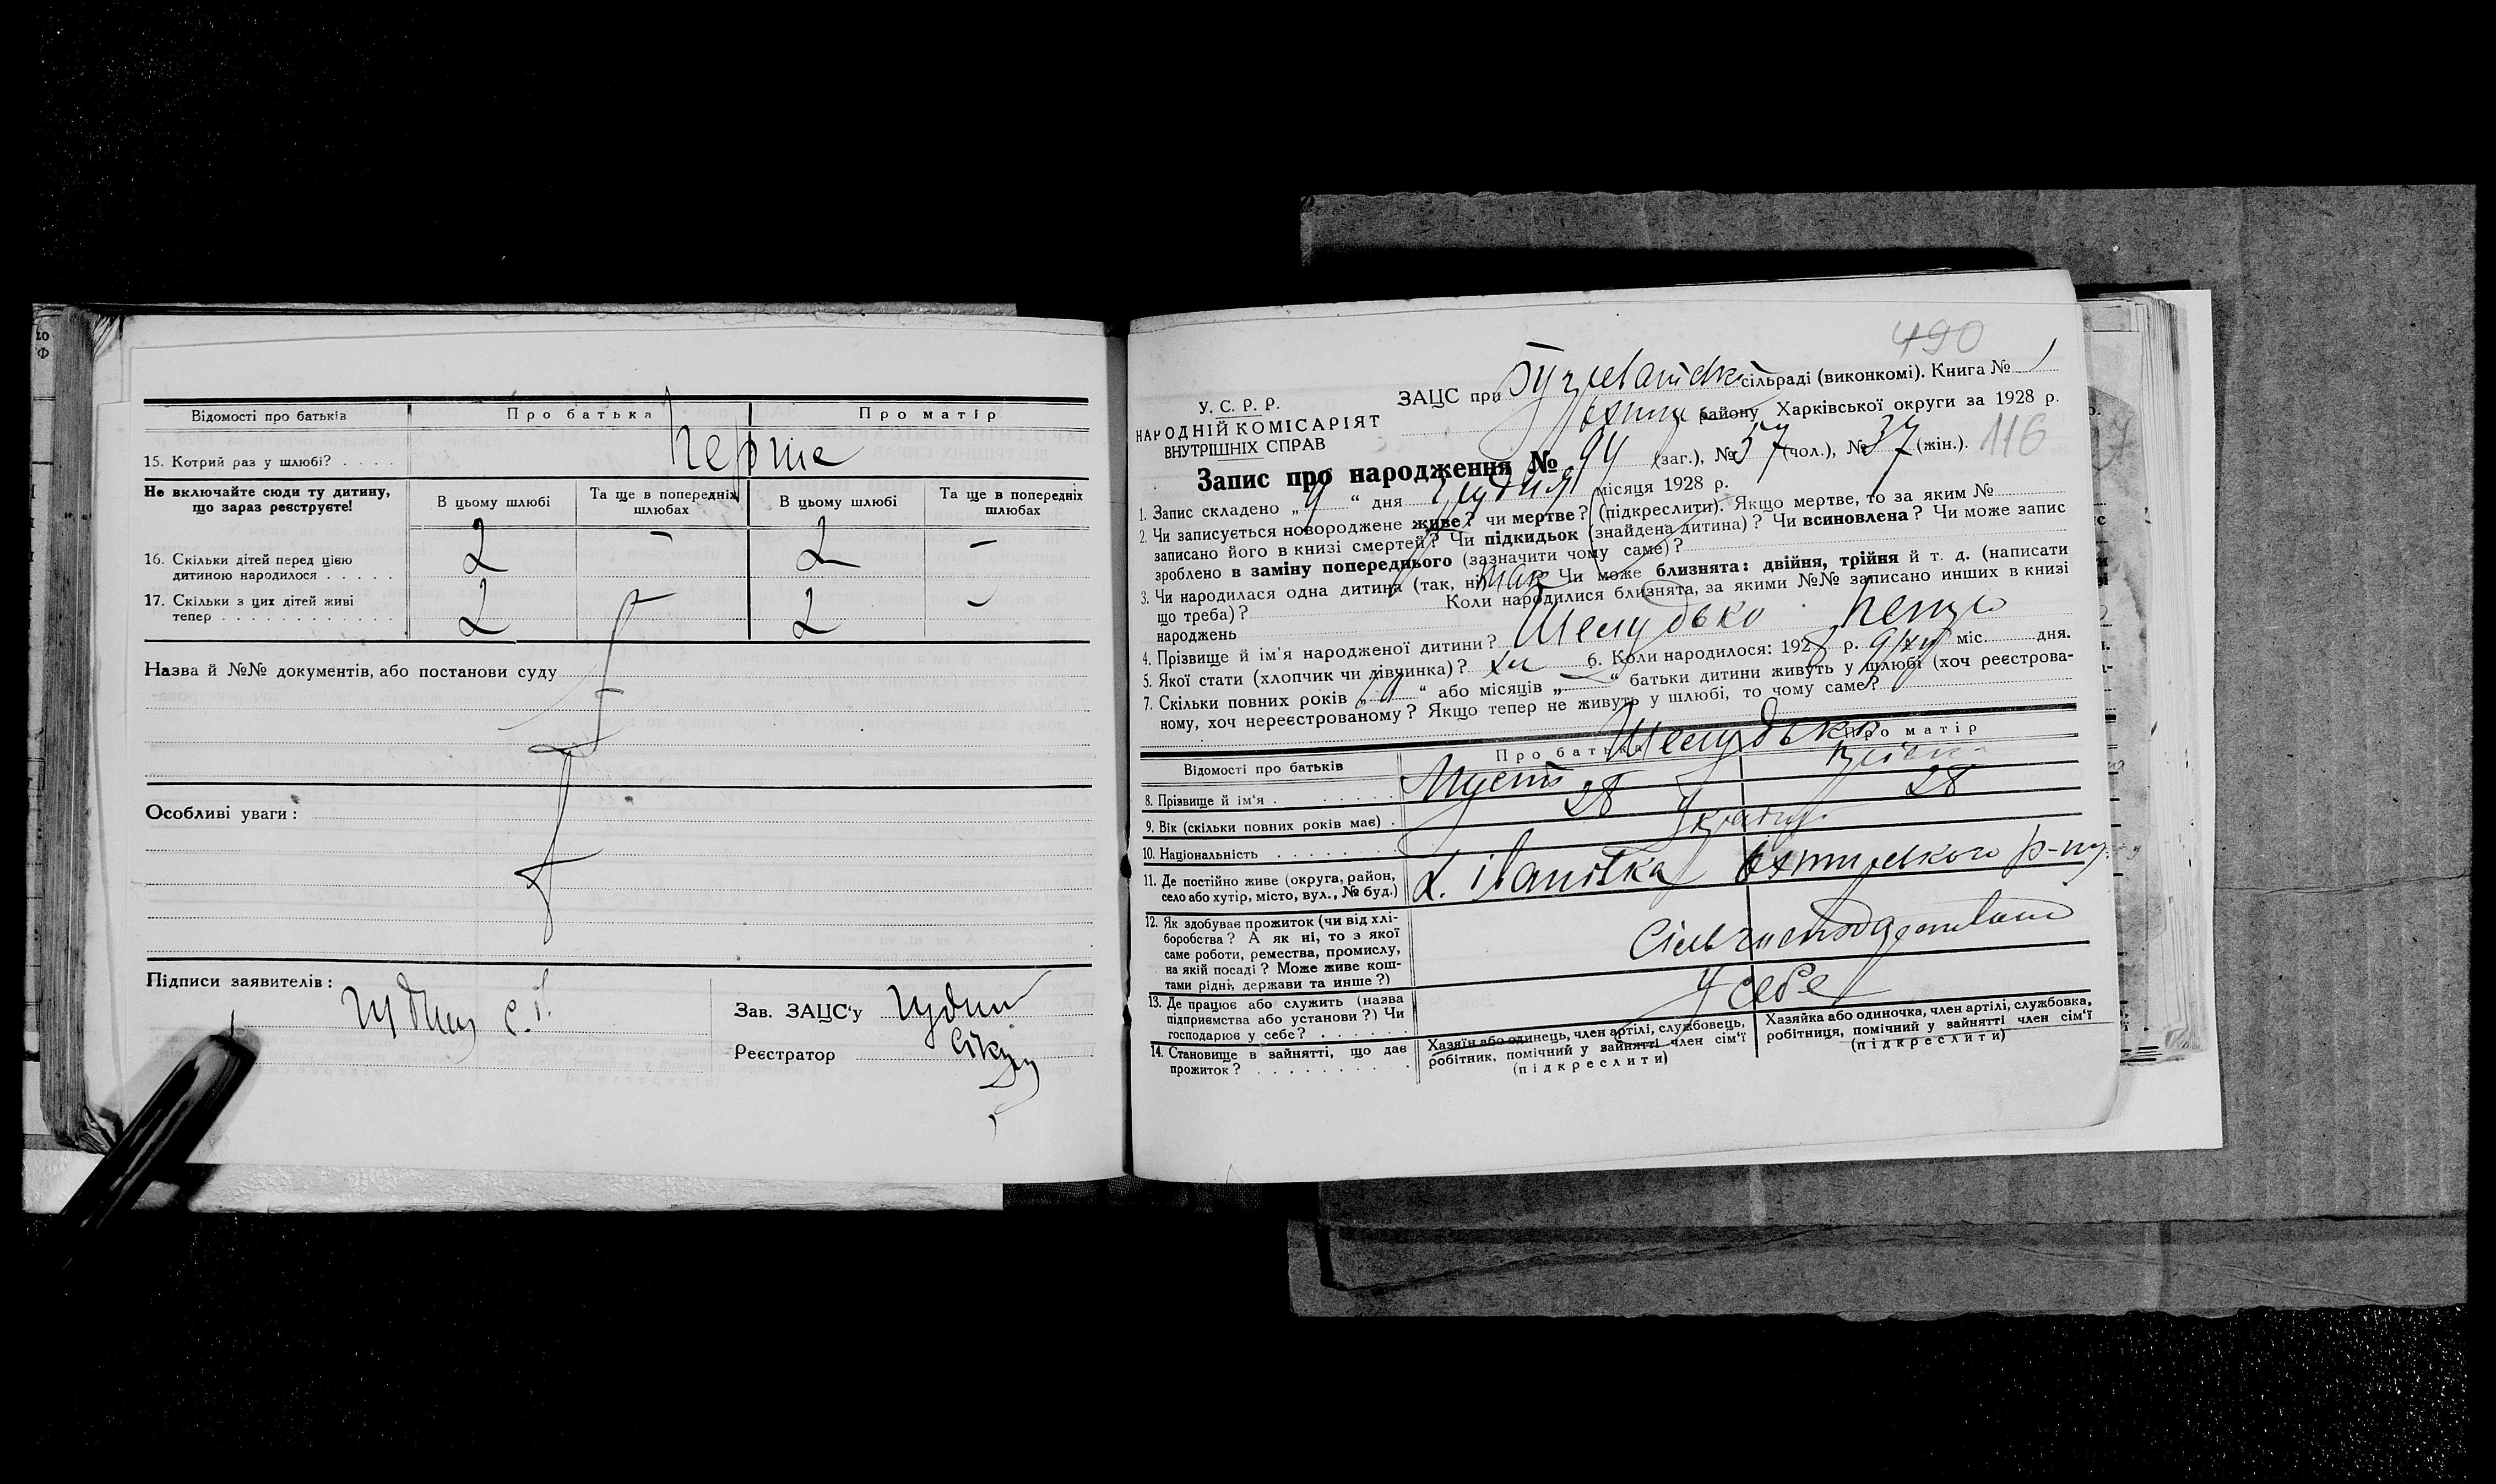 Відомості про батьків
Про батька
Про матір
15. Котрий раз у шлюбі? . . . .
перше
Не включайте сюди ту дитину,
що зараз реєструєте!
В цьому шлюбі
Та ще в попередніх
шлюбах
В цьому шлюбі
Та ще в попередніх
шлюбах
16. Скільки дітей перед цією
дитиною народилося . . . . .
2 — 2 —
17. Скільки з цих дітей живі
тепер . . . . . . . . . . . .
2 — 2 —
Назва й №№ документів, або постанови суду
Особливі уваги:
Підписи заявителів:
Зав. ЗАЦС'у
Реєстратор
490
У. С. Р. Р.
НАРОДНІЙ КОМІСАРІЯТ
ВНУТРІШНІХ СПРАВ
ЗАЦС при сільраді (виконкомі). Книга № 1
району Харківської округи за 1928 р.
116
Запис про народження № 94 (заг.), № 57 (чол.), № 37 (жін.).
1. Запис складено „ 9 “ дня грудня місяця 1928 р.
2. Чи записується новороджене живе? чи мертве? (підкреслити). Якщо мертве, то за яким №
записано його в книзі смертей? Чи підкидьок (знайдена дитина)? Чи всиновлена? Чи може запис
зроблено в заміну попереднього (зазначити чому саме)?
3. Чи народилася одна дитина (так, ні) так Чи може близнята: двійня, трійня й т. д. (написати
що треба)? Коли народилися близнята, за якими №№ записано инших в книзі
народжень
4. Прізвище й ім'я народженої дитини? Шелудько Петро
5. Якої стати (хлопчик чи дівчинка)? хл 6. Коли народилося: 1928 р. 9/XII міс. дня.
7. Скільки повних років „ “ або місяців „ — “ батьки дитини живуть у шлюбі (хоч реєстрова-
ному, хоч нереєстрованому? Якщо тепер не живуть у шлюбі, то чому саме?
Відомості про батьків
Про батька
Про матір
Шелудько
8. Прізвище й ім'я . . . . . .
9. Вік (скільки повних років має) .
28 28
10. Національність . . . . . . .
11. Де постійно живе (округа, район,
село або хутір, місто, вул., № буд.)
с. Іванівка Охтирського р-ну
12. Як здобуває прожиток (чи від хлі-
боробства? А як ні, то з якої
саме роботи, ремества, промислу,
на якій посаді? Може живе кош-
тами рідні, держави та инше?)
13. Де працює або служить (назва
підприємства або установи?) Чи
господарює у себе? . . . . .
У себе
14. Становище в зайнятті, що дає
прожиток? . . . . . . . . . .
Хазяїн або одинець, член артілі, службовець,
робітник, помічний у зайнятті член сім'ї
(підкреслити)
Хазяйка або одиночка, член артілі, службовка,
робітниця, помічний у зайнятті член сім'ї
(підкреслити)